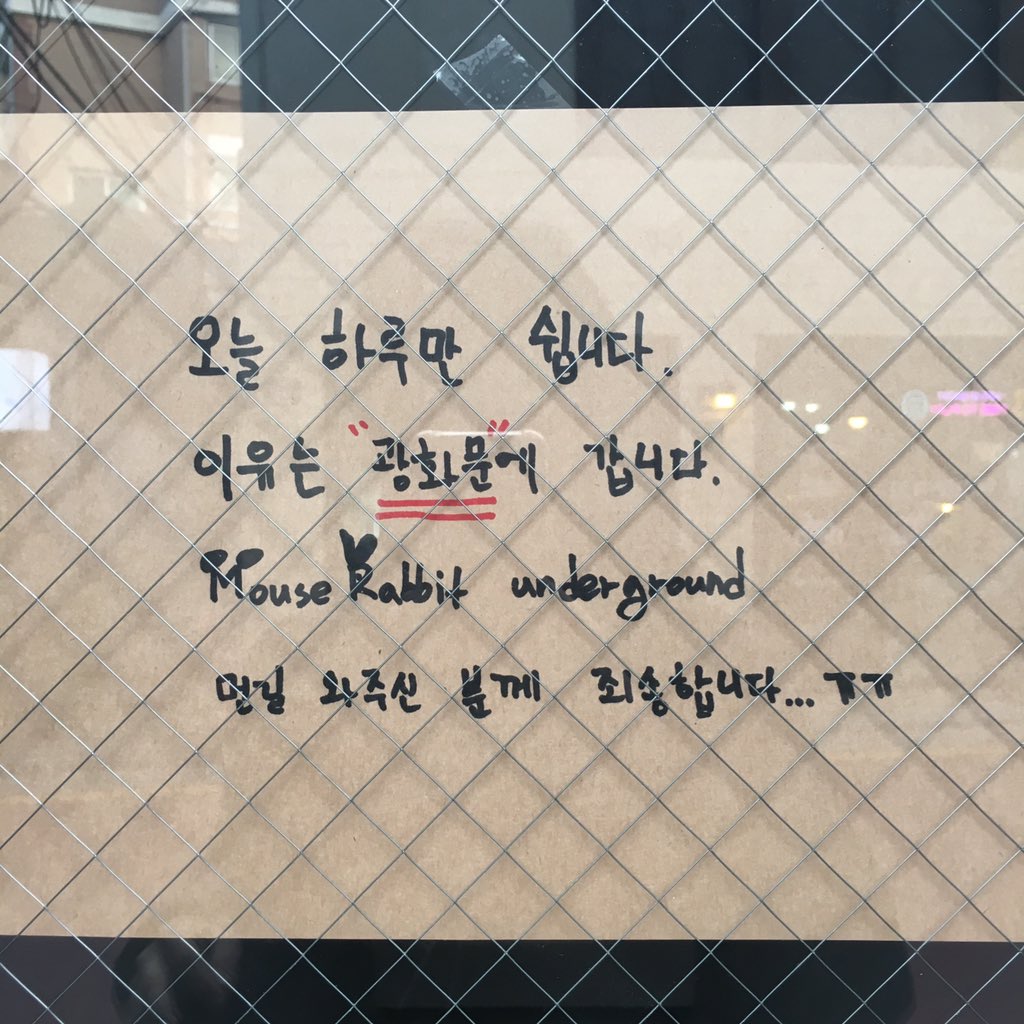 오늘 하루만 쉽니다.
이유는 "광화문"에 갑니다.
Mouse Rabbit underground
먼길 와주신 분께 죄송합니다... ㅠㅠ